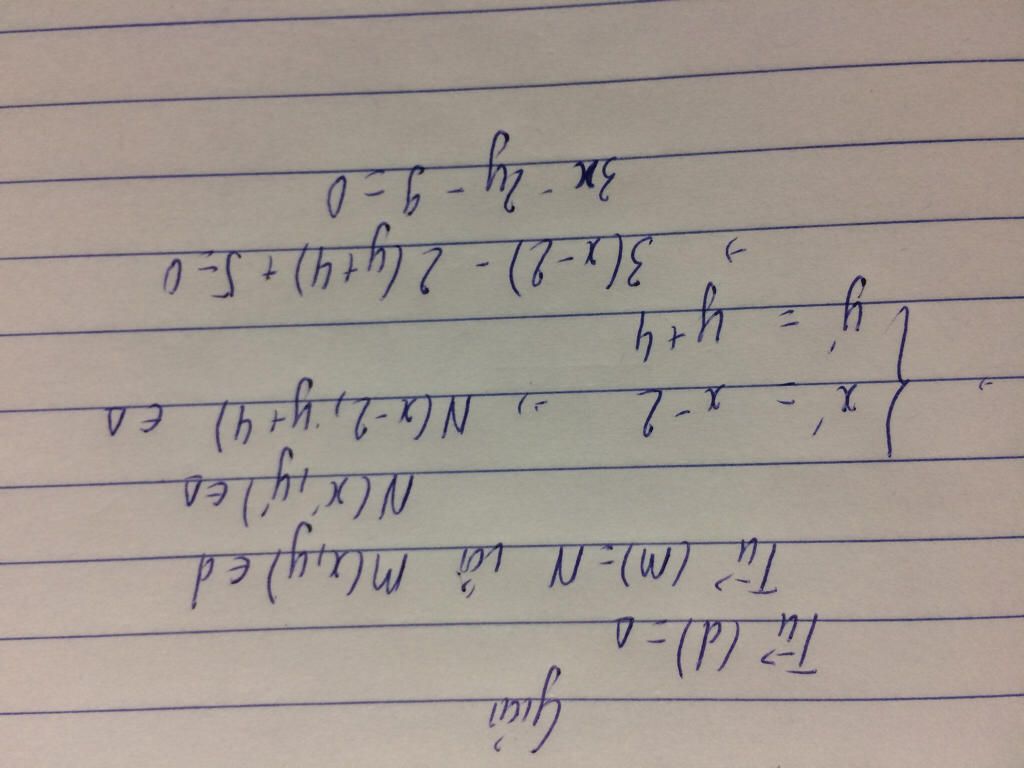 Giải
Tu⃗ (d) = Δ
Tu⃗ (M) = N với M(x, y) ∈ d
N(x', y') ∈ Δ
⇒ { x' = x - 2 ⇒ N(x-2, y+4) ∈ Δ
y' = y + 4
⇒ 3(x-2) - 2(y+4) + 5 = 0
3x - 2y - 9 = 0